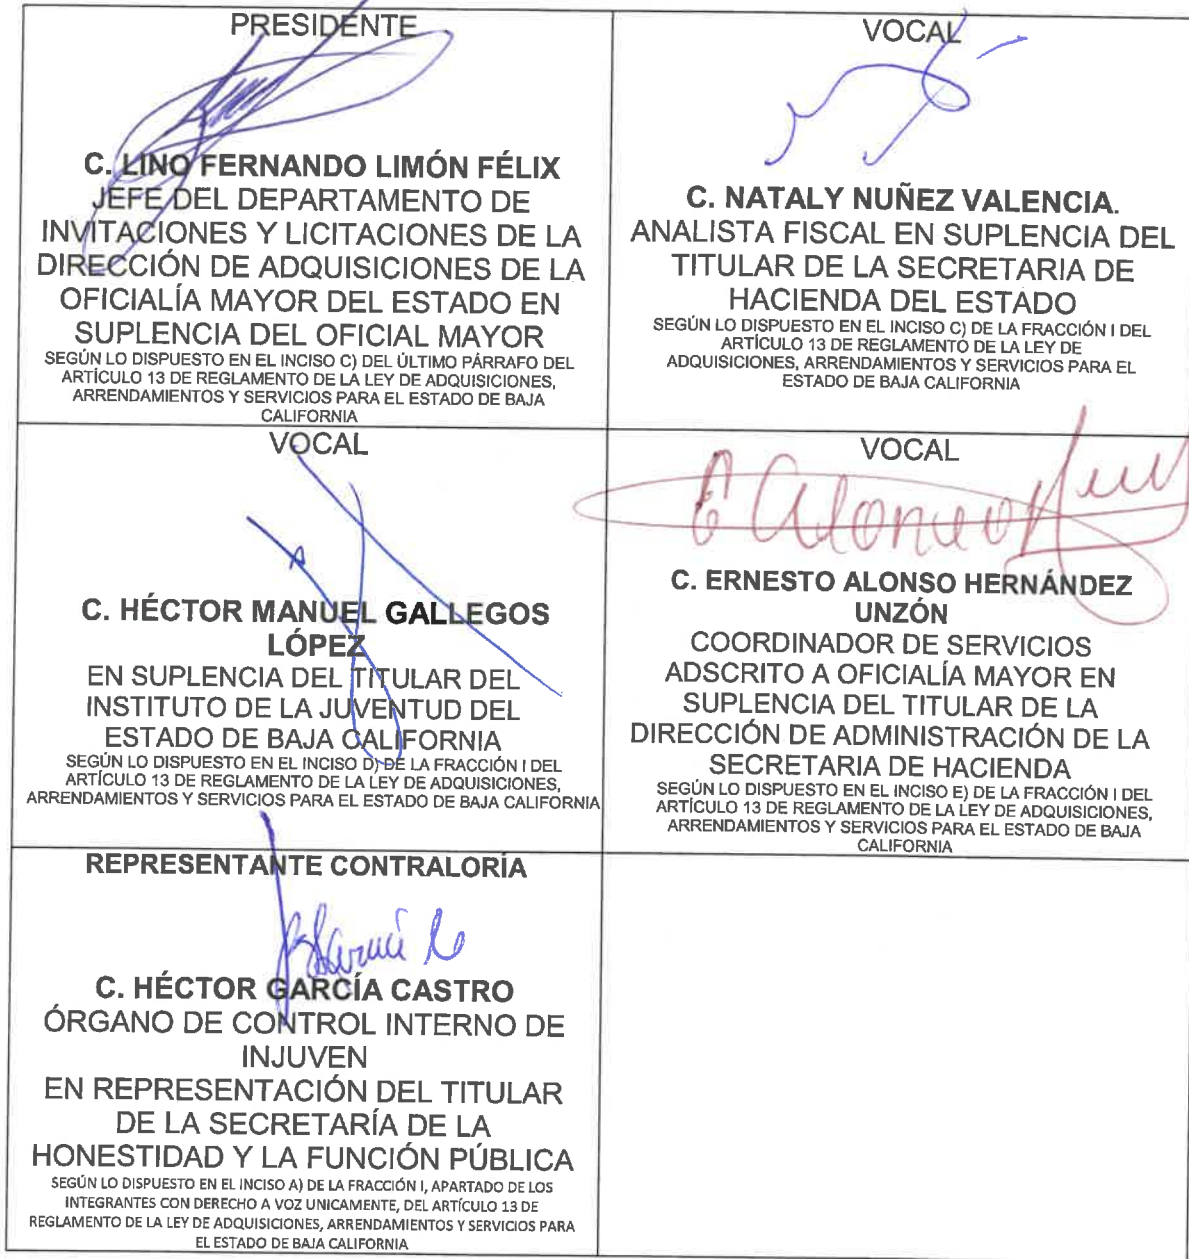 PRESIDENTE
C. LINO FERNANDO LIMÓN FÉLIX
JEFE DEL DEPARTAMENTO DE
INVITACIONES Y LICITACIONES DE LA
DIRECCIÓN DE ADQUISICIONES DE LA
OFICIALÍA MAYOR DEL ESTADO EN
SUPLENCIA DEL OFICIAL MAYOR
SEGÚN LO DISPUESTO EN EL INCISO C) DEL ÚLTIMO PÁRRAFO DEL
ARTÍCULO 13 DE REGLAMENTO DE LA LEY DE ADQUISICIONES,
ARRENDAMIENTOS Y SERVICIOS PARA EL ESTADO DE BAJA
CALIFORNIA
VOCAL
C. NATALY NUÑEZ VALENCIA.
ANALISTA FISCAL EN SUPLENCIA DEL
TITULAR DE LA SECRETARIA DE
HACIENDA DEL ESTADO
SEGÚN LO DISPUESTO EN EL INCISO C) DE LA FRACCIÓN I DEL
ARTÍCULO 13 DE REGLAMENTO DE LA LEY DE
ADQUISICIONES, ARRENDAMIENTOS Y SERVICIOS PARA EL
ESTADO DE BAJA CALIFORNIA
VOCAL
C. HÉCTOR MANUEL GALLEGOS
LÓPEZ
EN SUPLENCIA DEL TITULAR DEL
INSTITUTO DE LA JUVENTUD DEL
ESTADO DE BAJA CALIFORNIA
SEGÚN LO DISPUESTO EN EL INCISO D) DE LA FRACCIÓN I DEL
ARTÍCULO 13 DE REGLAMENTO DE LA LEY DE ADQUISICIONES,
ARRENDAMIENTOS Y SERVICIOS PARA EL ESTADO DE BAJA CALIFORNIA
VOCAL
C. ERNESTO ALONSO HERNÁNDEZ
UNZÓN
COORDINADOR DE SERVICIOS
ADSCRITO A OFICIALÍA MAYOR EN
SUPLENCIA DEL TITULAR DE LA
DIRECCIÓN DE ADMINISTRACIÓN DE LA
SECRETARIA DE HACIENDA
SEGÚN LO DISPUESTO EN EL INCISO E) DE LA FRACCIÓN I DEL
ARTÍCULO 13 DE REGLAMENTO DE LA LEY DE ADQUISICIONES,
ARRENDAMIENTOS Y SERVICIOS PARA EL ESTADO DE BAJA
CALIFORNIA
REPRESENTANTE CONTRALORÍA
C. HÉCTOR GARCÍA CASTRO
ÓRGANO DE CONTROL INTERNO DE
INJUVEN
EN REPRESENTACIÓN DEL TITULAR
DE LA SECRETARÍA DE LA
HONESTIDAD Y LA FUNCIÓN PÚBLICA
SEGÚN LO DISPUESTO EN EL INCISO A) DE LA FRACCIÓN I, APARTADO DE LOS
INTEGRANTES CON DERECHO A VOZ UNICAMENTE, DEL ARTÍCULO 13 DE
REGLAMENTO DE LA LEY DE ADQUISICIONES, ARRENDAMIENTOS Y SERVICIOS PARA
EL ESTADO DE BAJA CALIFORNIA